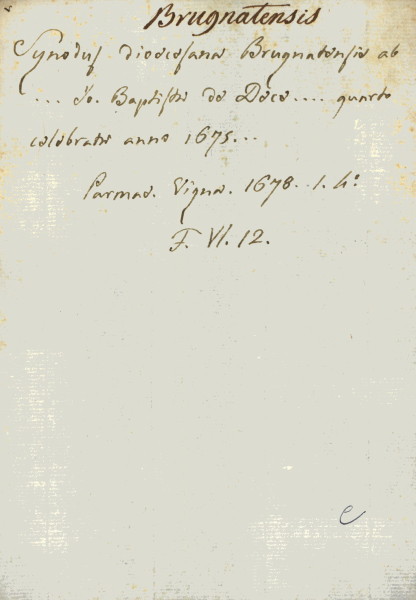 Brugnatensis
Synodus dioecesana Brugnatensis ab
... Jo. Baptista de Dece .... quarto
celebrata anno 1675...
Parmae. Vigna. 1678. 1. 4°
F. VI. 12.
e